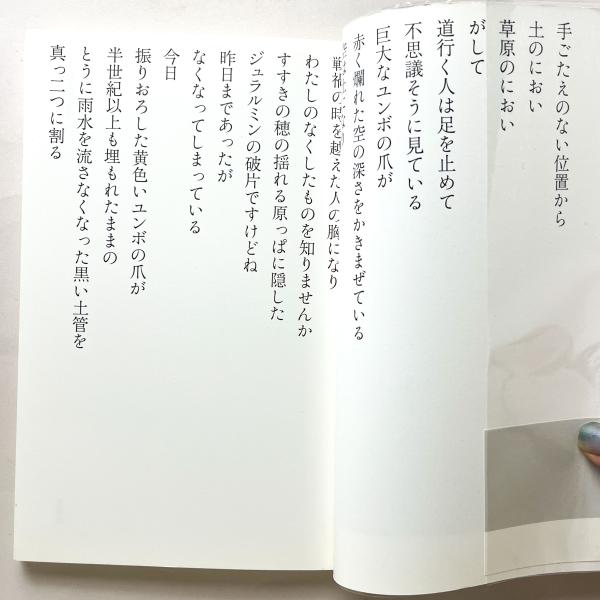 手ごたえのない位置から
土のにおい
草原のにおい
がして
道行く人は足を止めて
不思議そうに見ている
巨大なユンボの爪が
赤く爛れた空の深さをかきまぜている
戦禍の時を越えた人の脳になり
わたしのなくしたものを知りませんか
すすきの穂の揺れる原っぱに隠した
ジュラルミンの破片ですけどね
昨日まであったが
なくなってしまっている
今日
振りおろした黄色いユンボの爪が
半世紀以上も埋もれたままの
とうに雨水を流さなくなった黒い土管を
真っ二つに割る